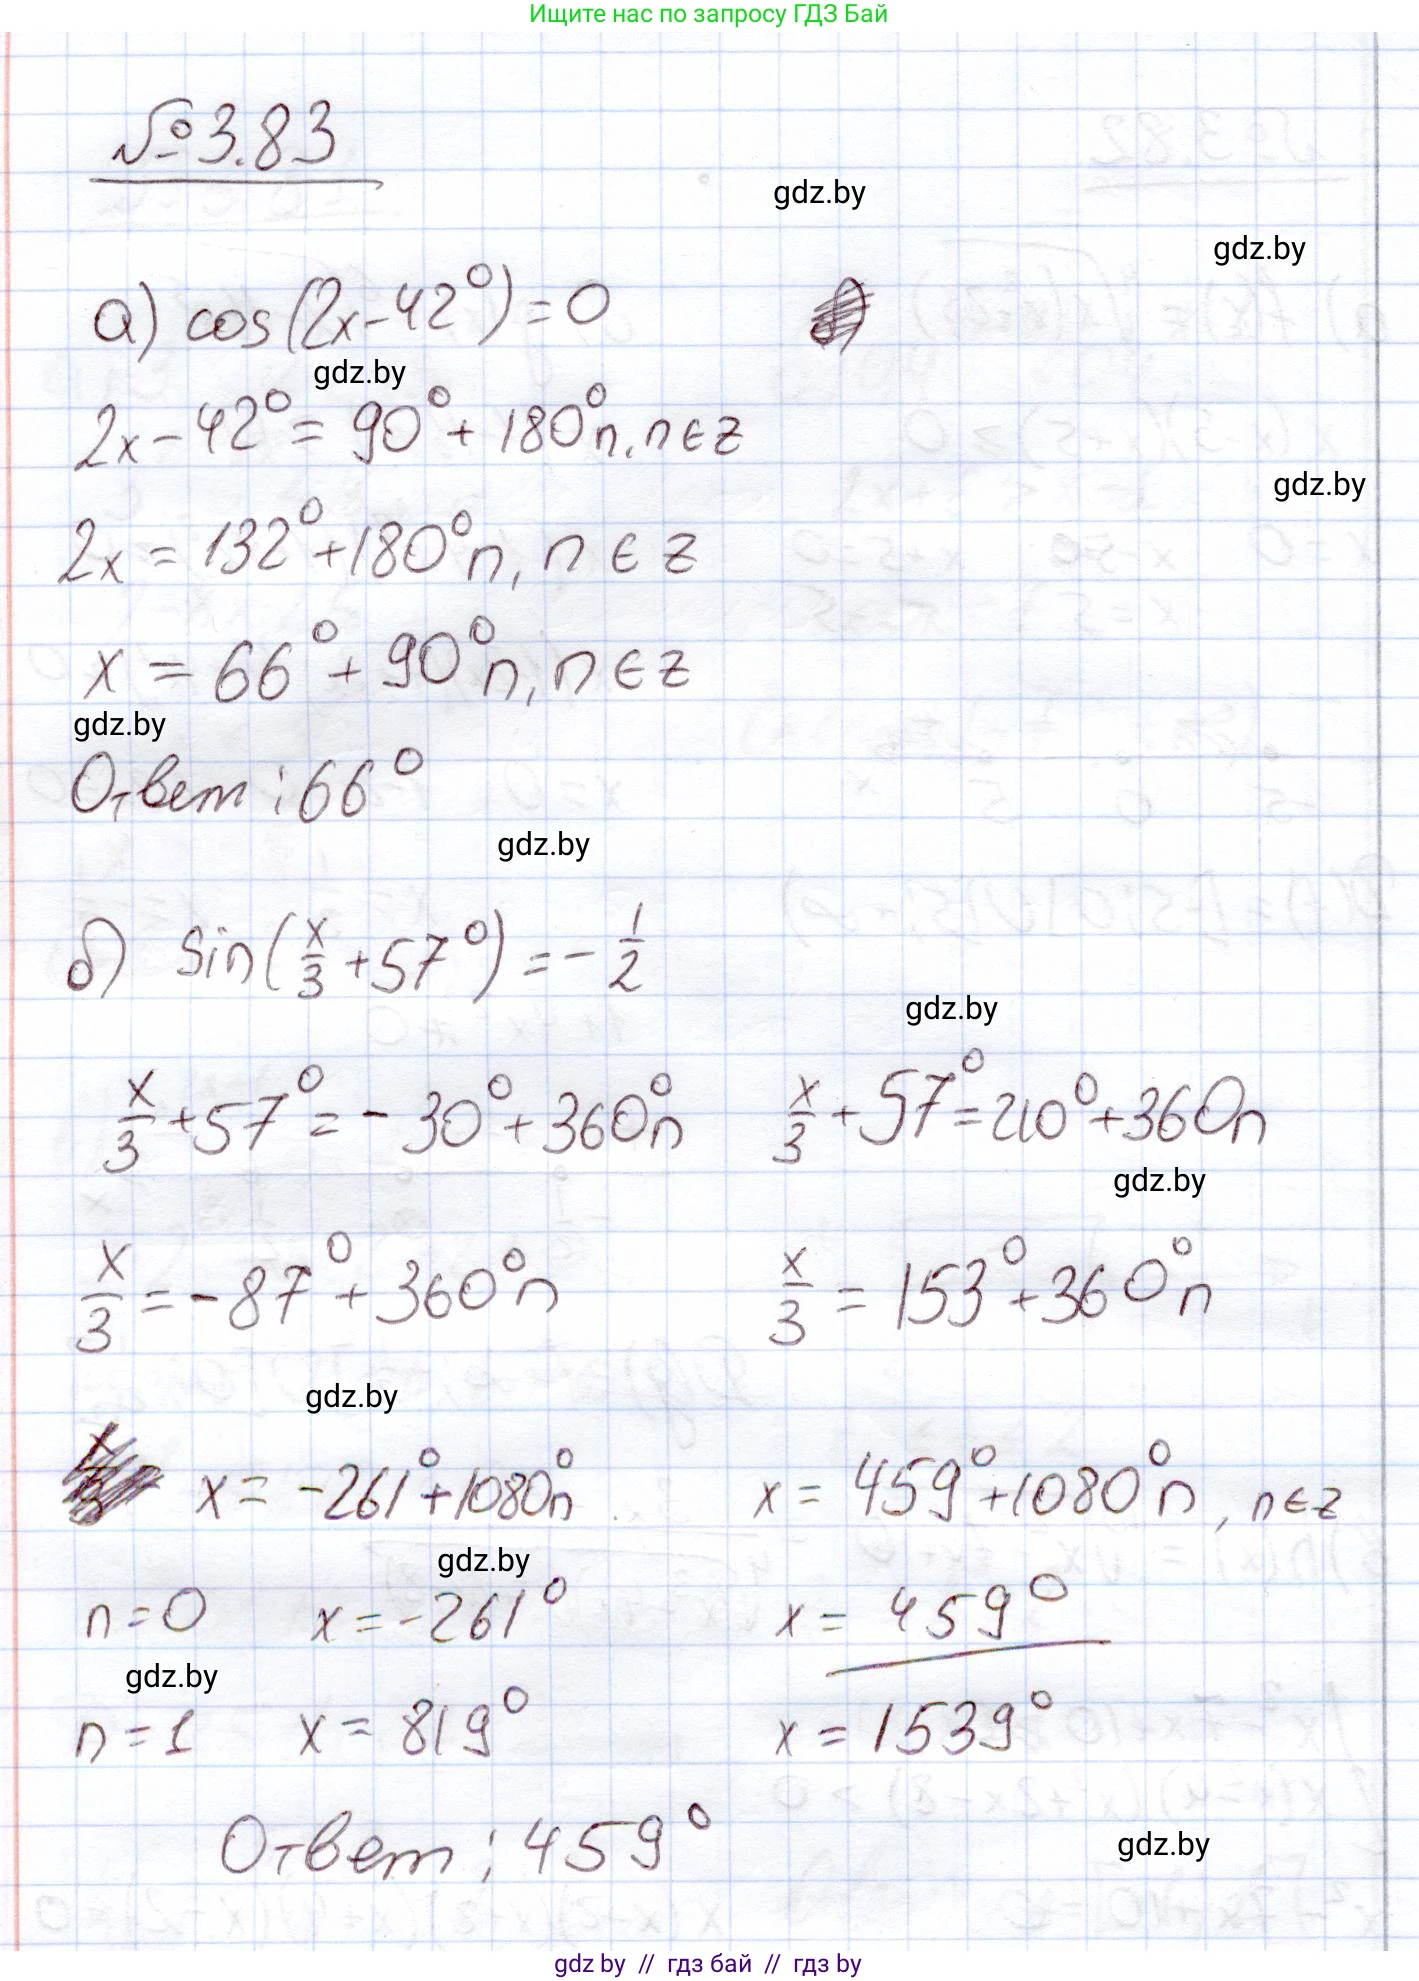 Ищите нас по запросу ГДЗ Бай
№ 3.83
gdz.by
gdz.by
а) cos(2x-42°)=0
gdz.by
2x-42°=90°+180°n, n∈z
gdz.by
2x=132°+180°n, n∈z
x=66°+90°n, n∈z
gdz.by
Ответ: 66°
gdz.by
б) sin(x/3+57°)=-1/2
gdz.by
x/3+57°=-30°+360°n x/3+57°=210°+360n
gdz.by
x/3=-87°+360°n x/3=153°+360°n
gdz.by
x=-261°+1080°n x=459°+1080°n, n∈z
gdz.by
n=0 x=-261° x=459°
gdz.by
n=1 x=819° x=1539°
Ответ: 459°
gdz.by
gdz by // гдз бай // гдз by